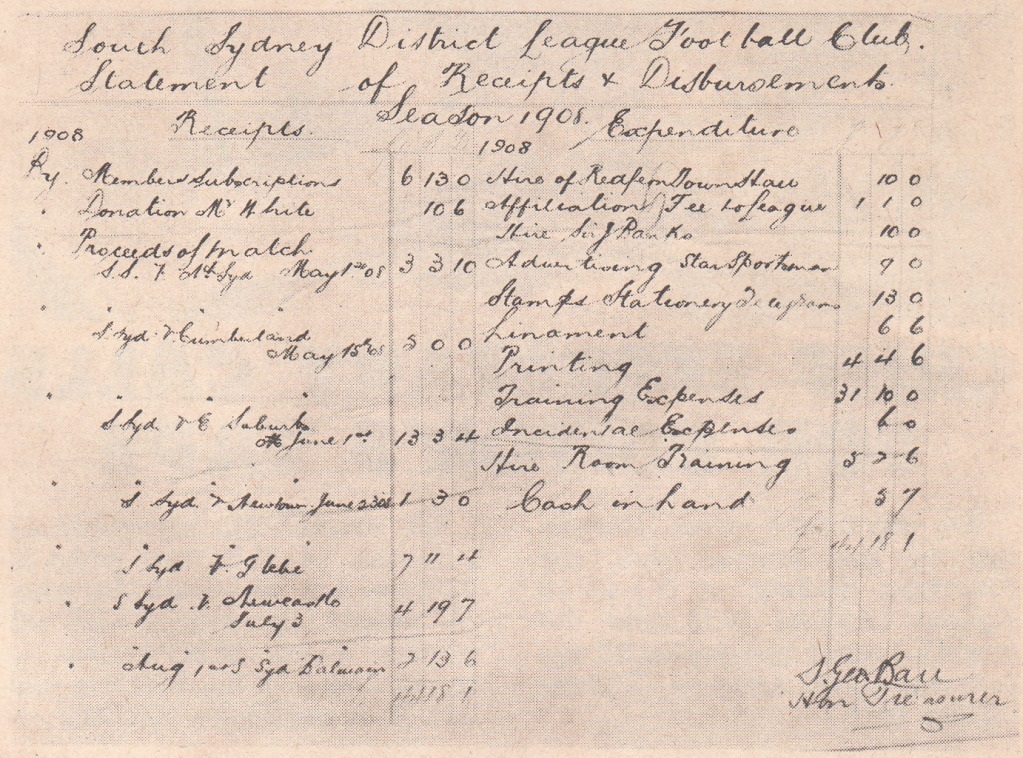 South Sydney District League Football Club.
Statement of Receipts & Disbursements
Season 1908.
1908 Receipts.
By. Members Subscriptions 6 13 0
" Donation Mr White 10 6
" Proceeds of match
S.S. V. Nth Syd May 1st 08 3 3 10
" " S Syd v Cumberland
May 15th 08 5 0 0
" " S Syd v E Suburbs
June 1st 13 3 4
" " S Syd v Newtown June 23 1 3 0
" " S Syd V. Glebe 7 11 4
" S Syd v. Newcastle
July 3 4 19 7
" Aug 1st S Syd Balmain 2 13 6
44 18 1
1908 Expenditure
Hire of Redfern Town Hall 10 0
Affiliation Fee to League 1 1 0
Hire Sir J Banks 10 0
Advertising Star Sportsman 9 0
Stamps Stationery Telegrams 13 0
Linament 6 6
Printing 4 4 6
Training Expenses 31 10 0
Incidental Expenses 6 0
Hire Room Training 5 2 6
Cash in hand 5 7
£ 44 18 1
S. Geo Ball
Hon Treasurer